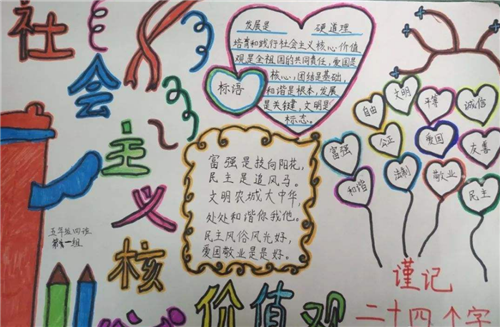 社会主义核心价值观
发展是 硬道理
培育和践行社会主义核心价值
观是全祖国的共同责任，爱国是
核心，团结是基础，
和谐是根本，发展
是关键，文明是
标态。
标语
富强是扶向阳花，
民主是追风马。
文明农城大中华，
处处和谐你我他。
民主风俗风光好，
爱国敬业是是好。
五年级四班
第一组
自由
文明
平等
诚信
富强
公正
爱国
友善
和谐
法制
敬业
民主
谨记
二十四个字